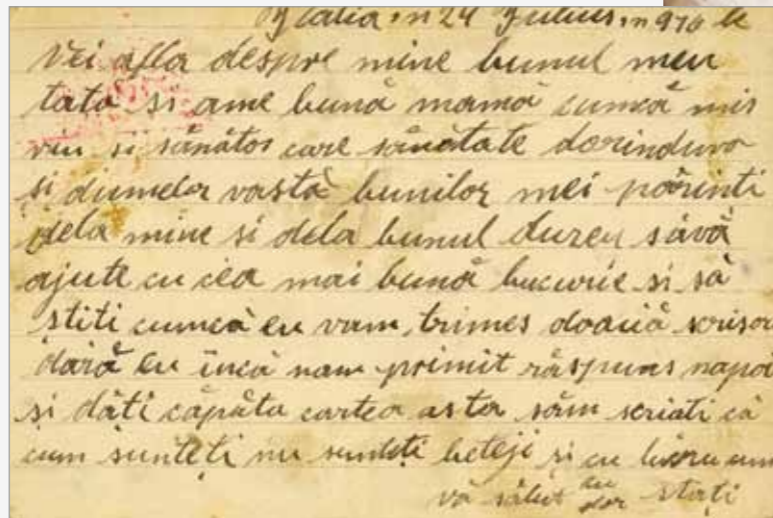 Italia in 24 Julius in 916 le
Vei afla despre mine bunul meu
tata si ame bună mamă cumcă mis
viu si sănătos care sănătate dorinduvo
si dumelor vastă bunilor mei părinti
dela mine si dela bunul durzeu săvă
ajute cu cea mai bună bucurie si să
stiti cumcă eu vam trimes doauă scrisor
dară eu încă nam primit răspuns napoi
si dăti căpăta cartea asta săm scriati că
cum sunteți nu sunteți beteji și cu lucru cum
vă sălut cu dor stați